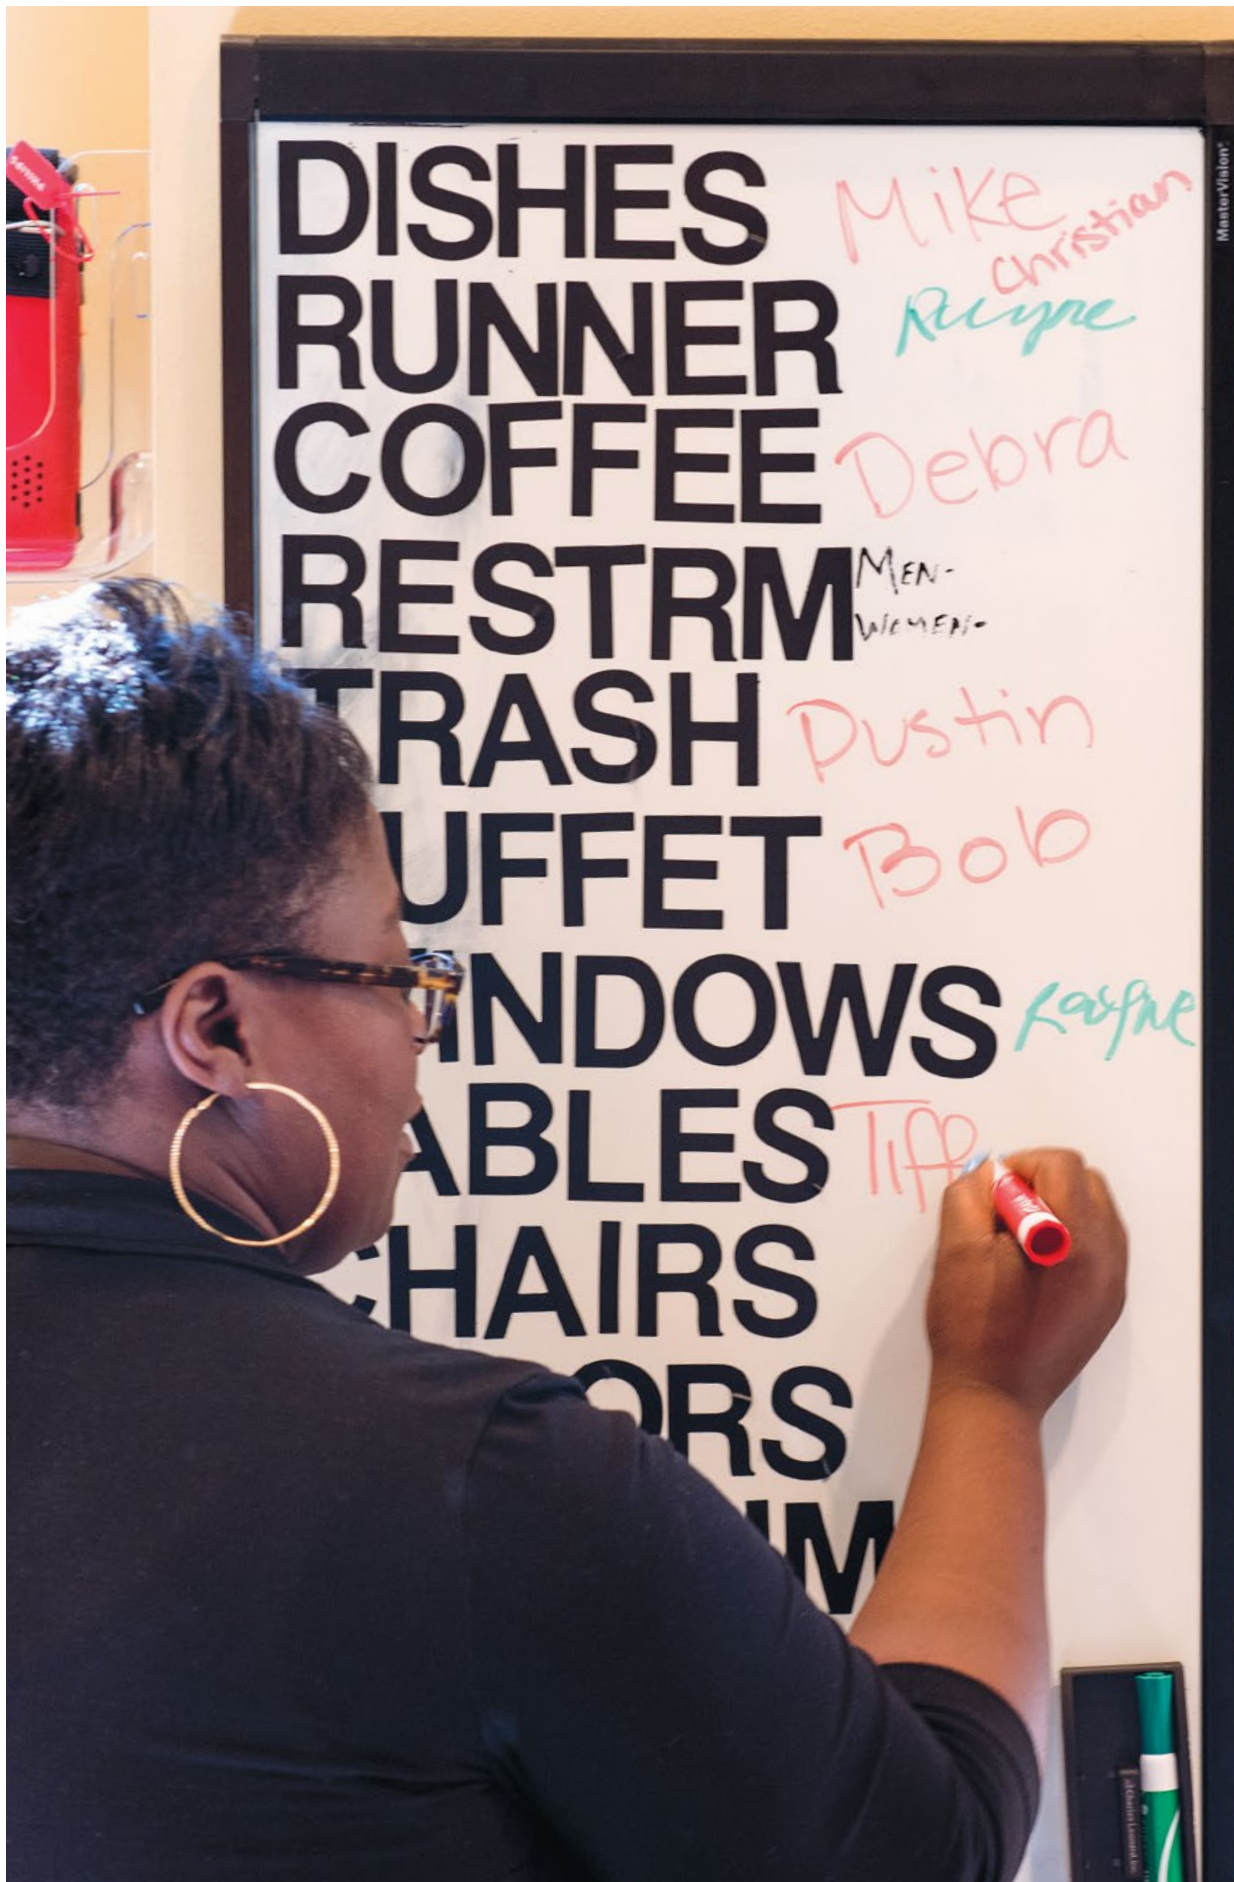 DISHES Mike
Christian
RUNNER Rayne
COFFEE Debra
RESTRM MEN-
WOMEN-
TRASH Dustin
UFFET Bob
INDOWS Rayne
ABLES Tiff
CHAIRS
ORS
IM
MasterVision